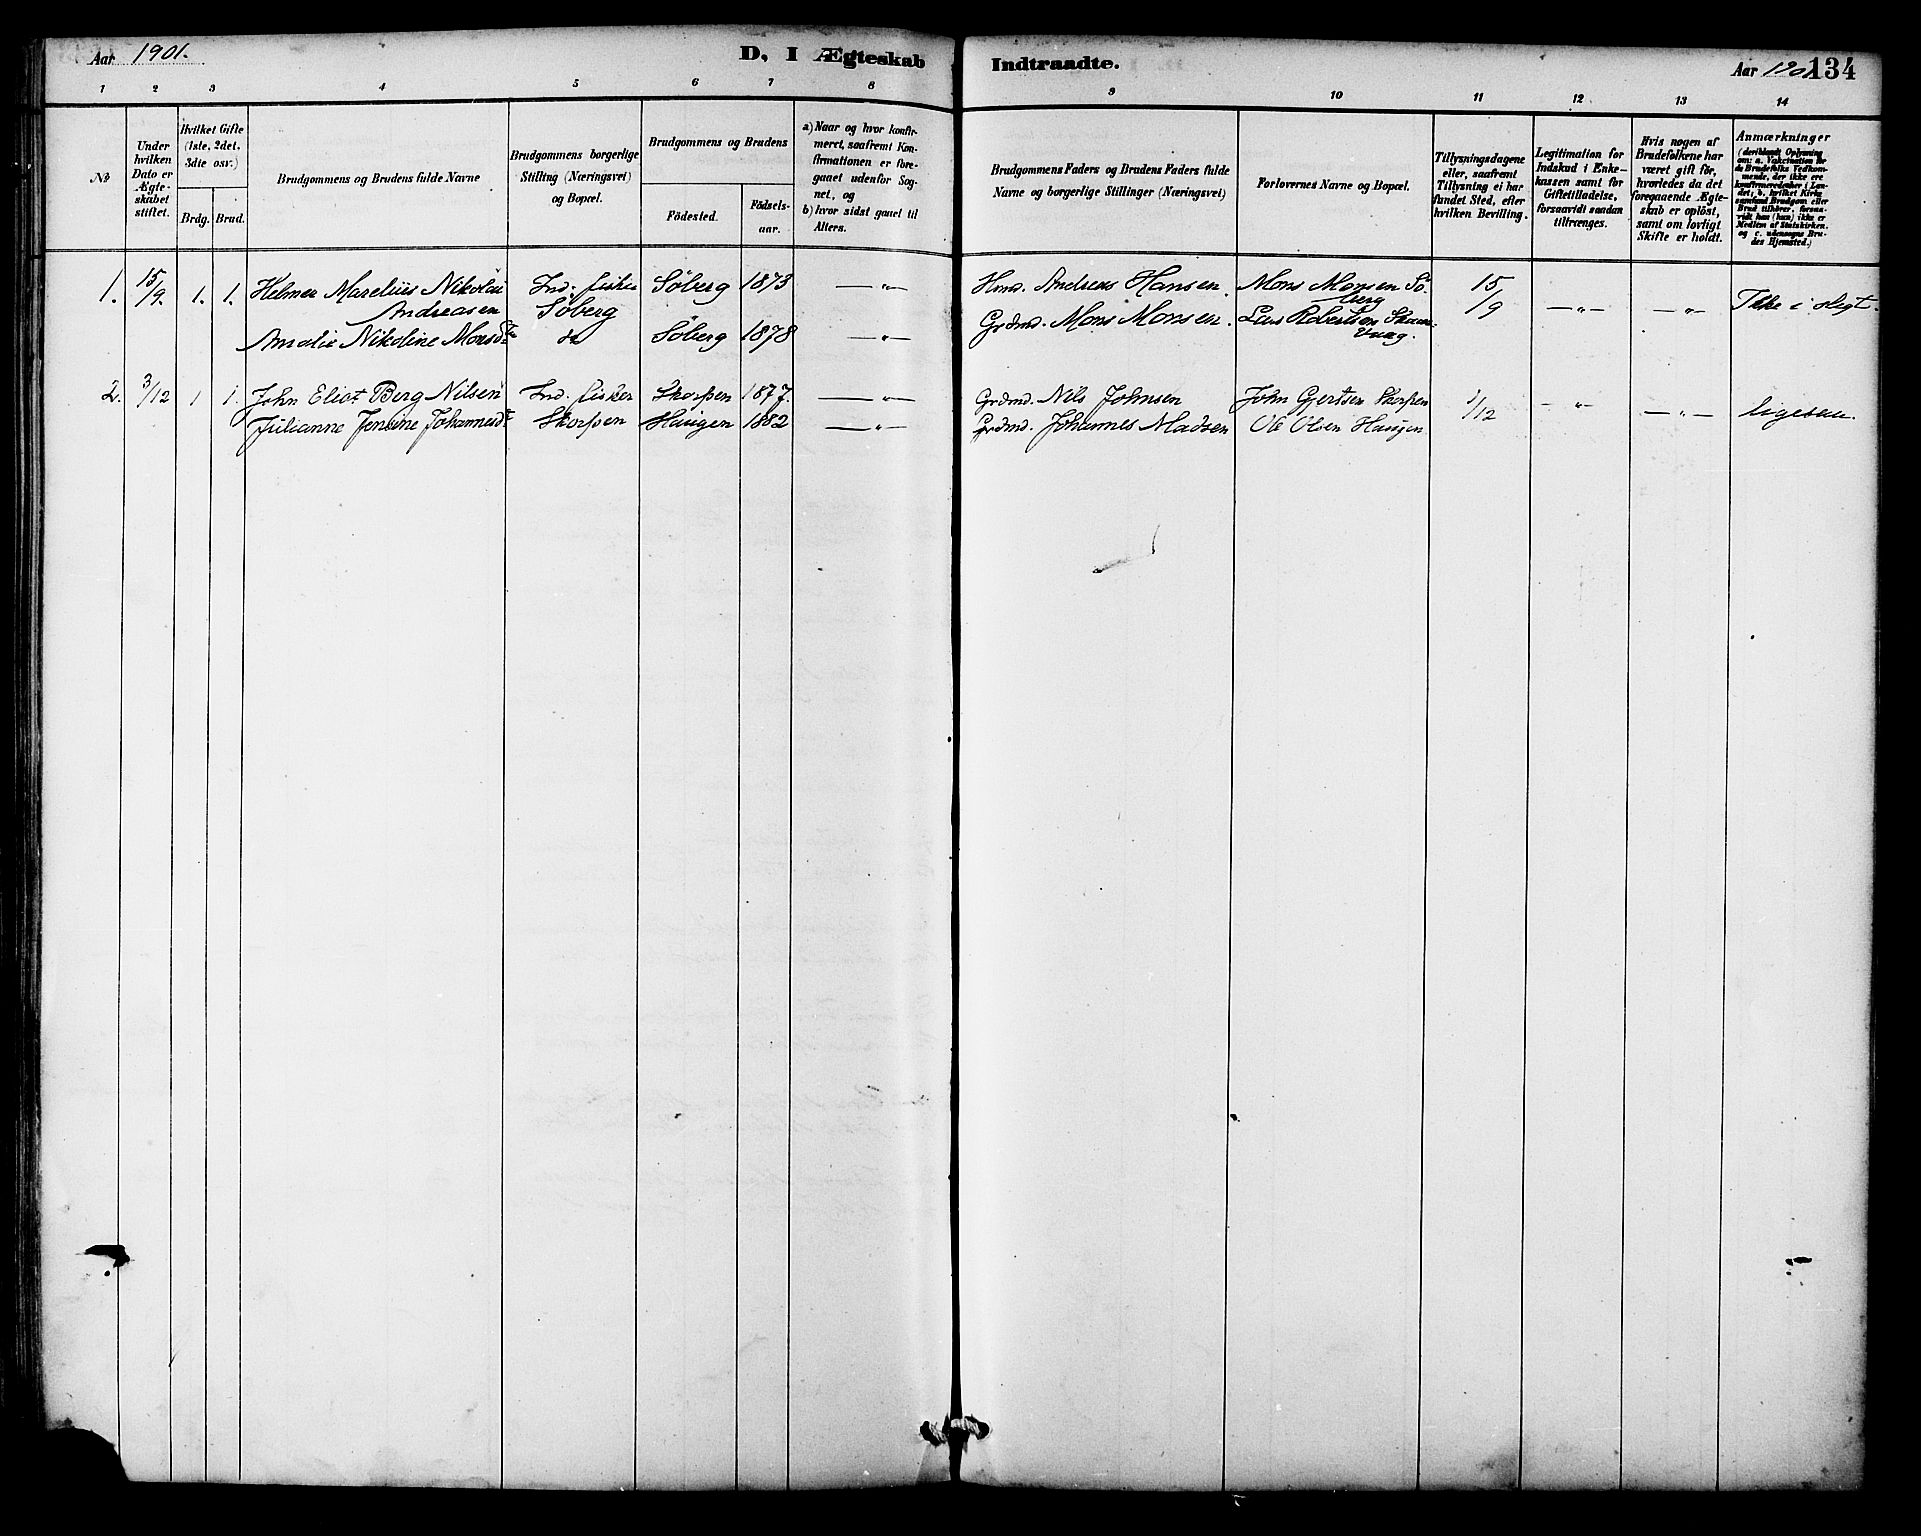 Aar 1901.
D, I Ægteskab Indtraadte.
Aar 1901 134
1 2 3 4 5 6 7 8 9 10 11 12 13 14
№
Under hvilken Dato er Ægteskabet stiftet.
Hvilket Gifte (1ste, 2det, 3die osv.)
Brdg. Brud.
Brudgommens og Brudens fulde Navne
Brudgommens borgerlige Stilling (Næringsvei) og Bopæl.
Brudgommens og Brudens
Födested.
Födsels-aar.
a) Naar og hvor konfir-
meret, saafremt Kon-
firmationen er fore-
gaaet udenfor Sog-
net, og
b) hvor sidst gaaet til
Alters.
Brudgommens Faders og Brudens Faders fulde
Navne og borgerlige Stillinger (Næringsvei)
Forlovernes Navne og Bopæl.
Tillysningsdagene
eller, saafremt
Tillysning ei har
fundet Sted, efter
hvilken Bevilling.
Legitimation for
Indskud i Enke-
kassen samt for
Giftetilladelse,
forsaavidt saadan
tiltrænges.
Hvis nogen af
Brudefolkene har
været gift för,
hvorledes da det
foregaaende Ægte-
skab er oplöst,
samt om lovligt
Skifte er holdt.
Anmærkninger
(deriblandt Oplysning
om: a. Vakcination for
de Brudefolks Vedkom-
mende, der ikke ere
konfirmerede her i Lan-
det; b. hvilket Kirke-
samfund Brudgom eller
Brud tilhører, forsaa-
vidt han (hun) ikke er
Medlem af Statskirken,
og c. udensogns Bru-
des Hjemsted.)
1. 15/9. 1. 1. Helmer Marelius Nikolai Ind. fisker Söberg 1873 — " — Hmd. Andreas Hansen. Mons Monsen Sö- 15/9 — " — — " — Ikke i slegt.
Andreasen Söberg berg
Amalie Nikoline Monsdtr do Söberg 1878 — " — Grdmd. Mons Monsen. Lars Robertsen
2. 3/12 1 1. John Eliot Berg Nilsen Ind. fisker Skorpen 1877. — " — Grdmd. Nils Johnsen John Gjertsen Skorpen 1/12 — " — — " — ligesaa.
Julianne Jensine Johannesdtr Skorpen Haugen 1882 — " — Grdmd. Johannes Madsen Ole Olsen Haugen